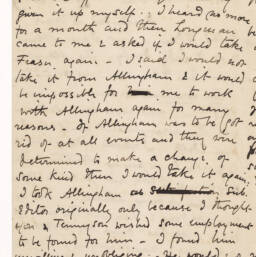 given it up myself. I heard no more
for a month and then Longman
came to me & asked if I would take
Fraser again. — I said I would not
take it from Allingham & it would
be impossible for me to work
with Allingham again for many
reasons. If Allingham was to be got
rid of at all events and they were
determined to make a change of
some kind then I would take it again.
I took Allingham as Sub.
Editor originally only because I thought
you & Tennyson wished some employment
to be found for him — I found him